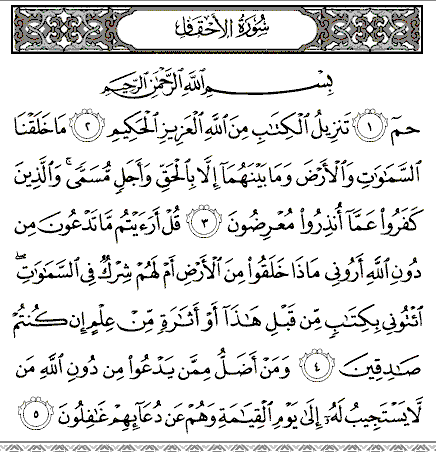 سُورَةُ الأَحْقَافِ
بِسْمِ اللَّهِ الرَّحْمَٰنِ الرَّحِيمِ
حمٓ ١ تَنزِيلُ الْكِتَٰبِ مِنَ اللَّهِ الْعَزِيزِ الْحَكِيمِ ٢ مَا خَلَقْنَا
السَّمَٰوَٰتِ وَالْأَرْضَ وَمَا بَيْنَهُمَآ إِلَّا بِالْحَقِّ وَأَجَلٍ مُّسَمًّى ۚ وَالَّذِينَ
كَفَرُوا۟ عَمَّآ أُنذِرُوا۟ مُعْرِضُونَ ٣ قُلْ أَرَءَيْتُم مَّا تَدْعُونَ مِن
دُونِ اللَّهِ أَرُونِى مَاذَا خَلَقُوا۟ مِنَ الْأَرْضِ أَمْ لَهُمْ شِرْكٌ فِى السَّمَٰوَٰتِ ۖ
ائْتُونِى بِكِتَٰبٍ مِّن قَبْلِ هَٰذَآ أَوْ أَثَٰرَةٍ مِّنْ عِلْمٍ إِن كُنتُمْ
صَٰدِقِينَ ٤ وَمَنْ أَضَلُّ مِمَّن يَدْعُوا۟ مِن دُونِ اللَّهِ مَن
لَّا يَسْتَجِيبُ لَهُۥٓ إِلَىٰ يَوْمِ الْقِيَٰمَةِ وَهُمْ عَن دُعَآئِهِمْ غَٰفِلُونَ ٥